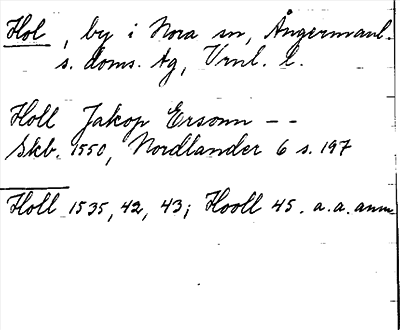 Hol, by i Nora sn, Ångermanl.
s. doms. tg, Vrnl. l.
Holl Jakop Ersonn --
Skb. 1550, Nordlander 6 s. 197
Holl 1535, 42, 43; Hooll 45. a.a. anm